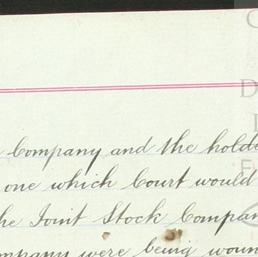 Company and the holde
one which Court would
he Joint Stock Compan
ompany were being woun